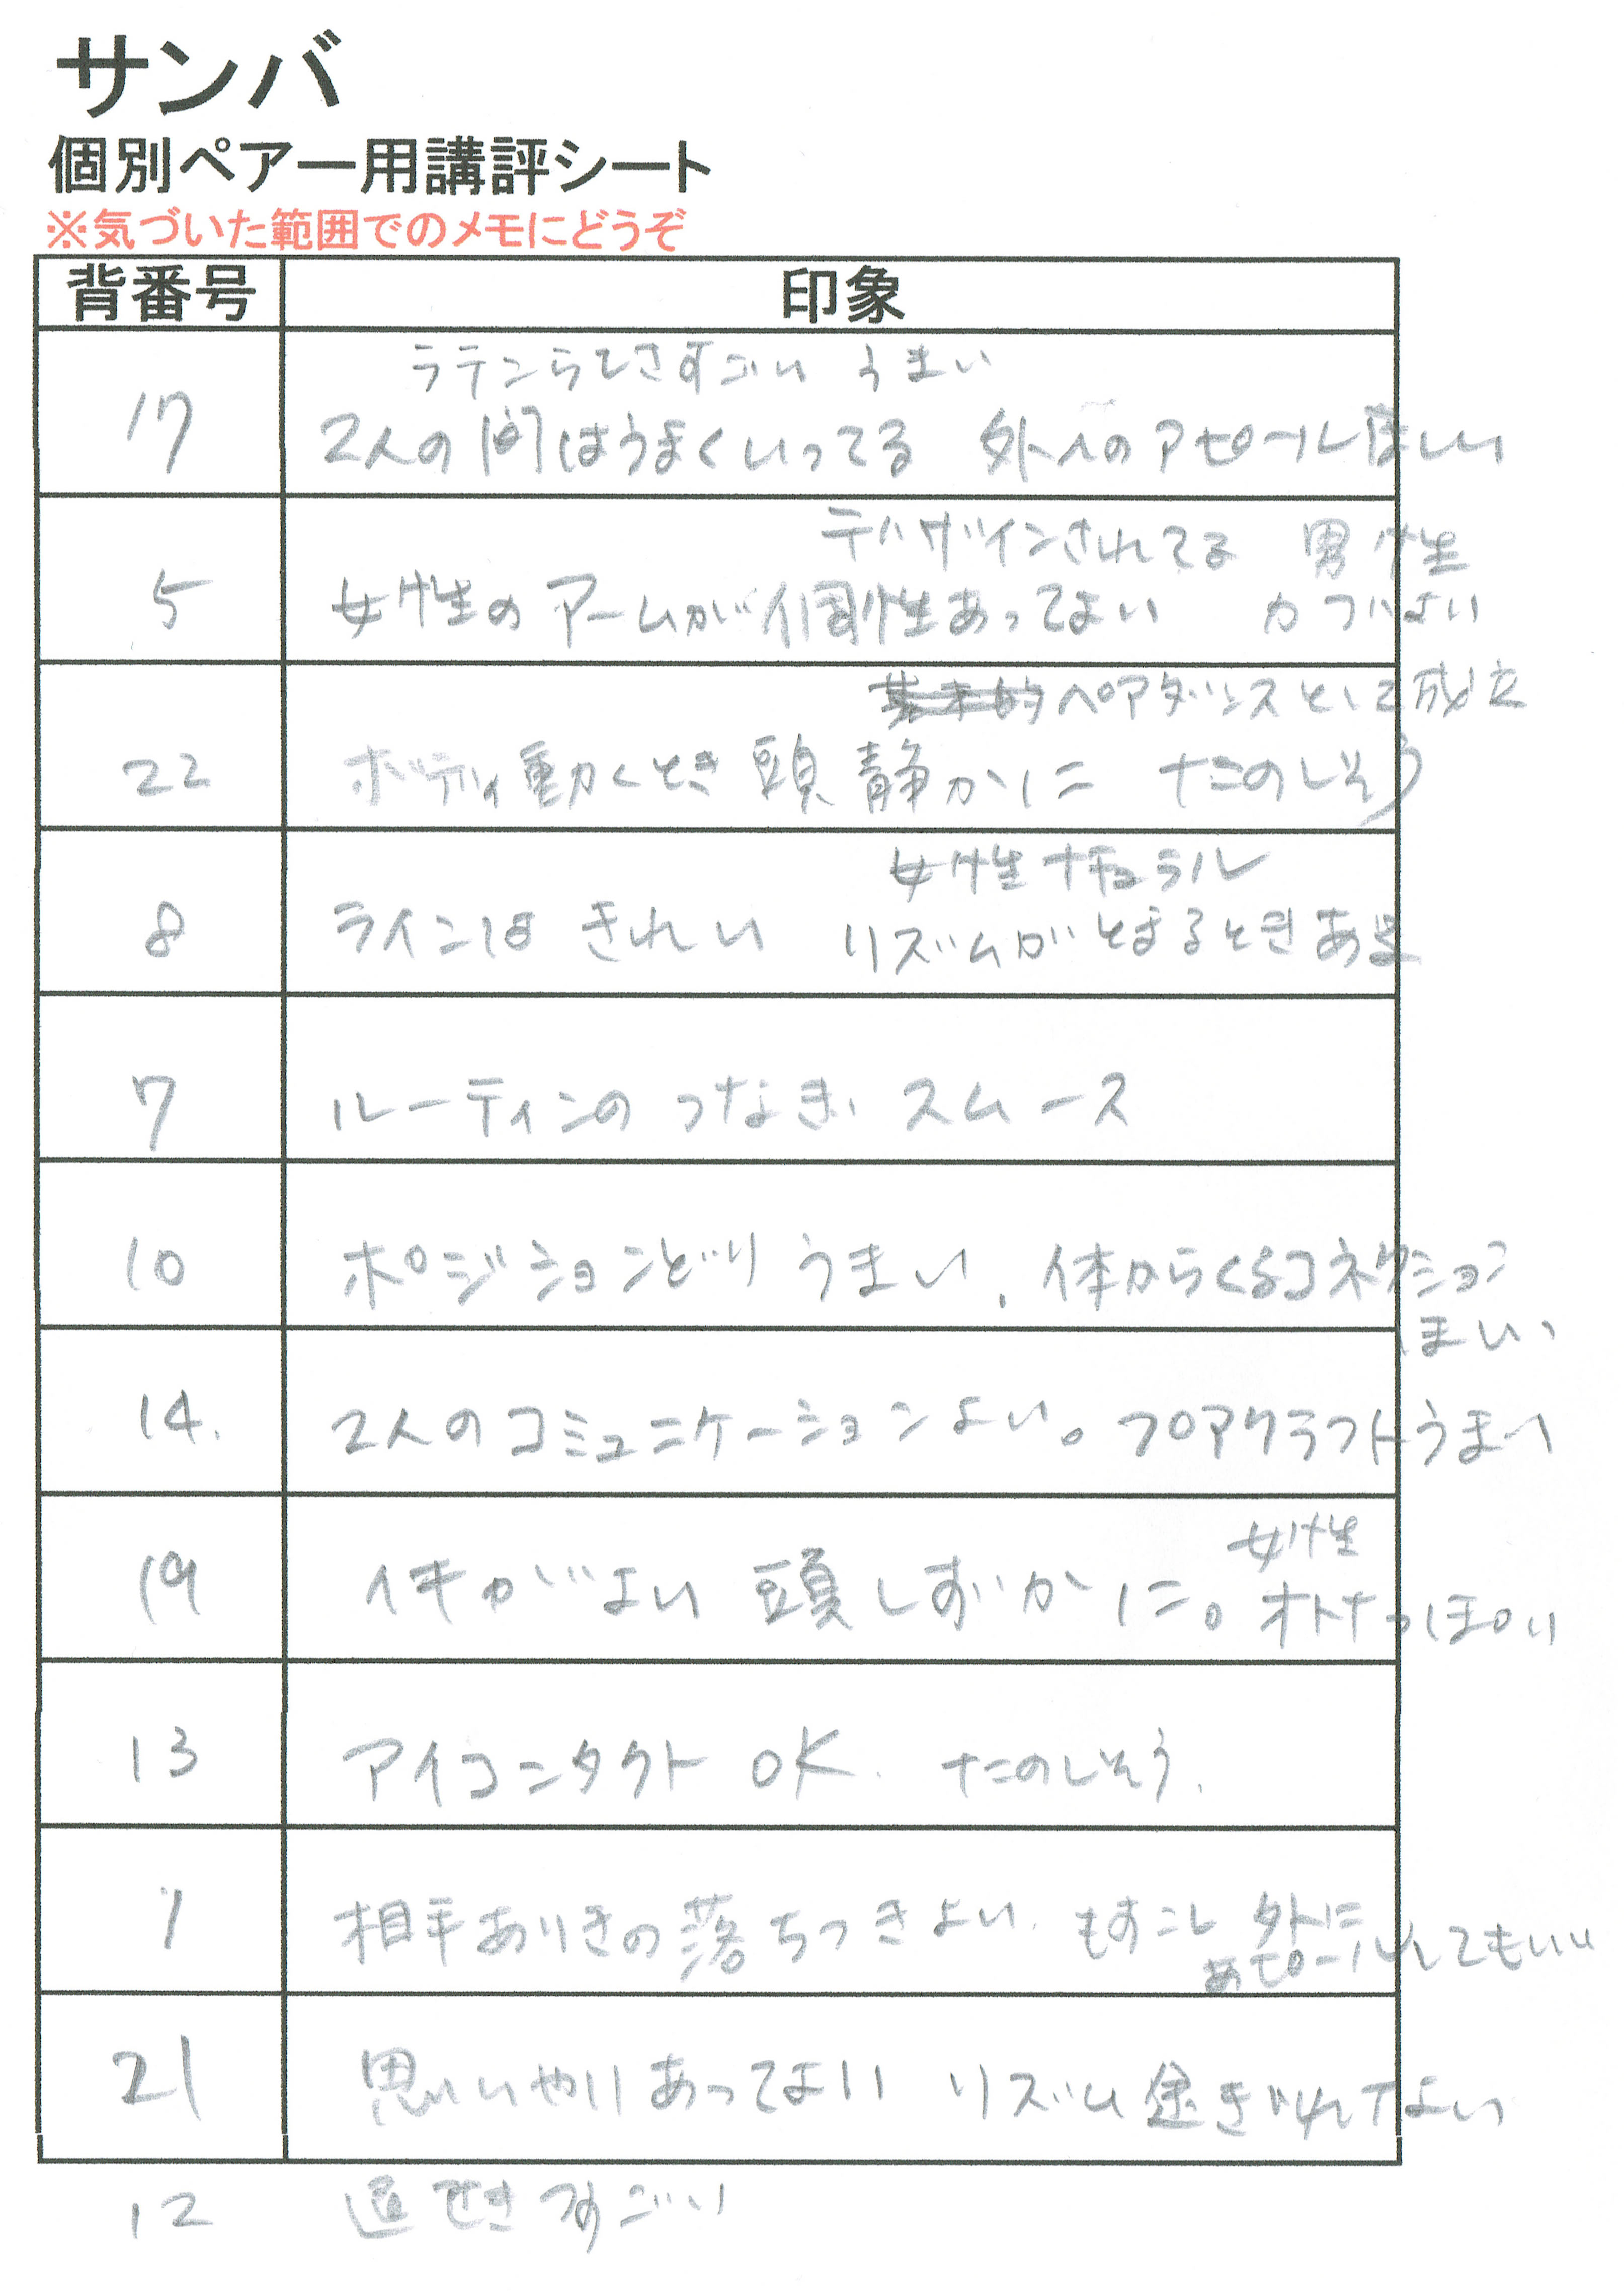 サンバ
個別ペアー用講評シート
※気づいた範囲でのメモにどうぞ
背番号 印象
ラテンらしさすごい うまい
17 2人の間はうまくいってる 外へのアピールほしい
デザインされてる 男性
5 女性のアームが個性あってよい カッコよい
ペアダンスとして成立
22 ボディ動くとき頭静かに たのしそう
女性ナチュラル
8 ラインはきれい リズムがとまるときある
7 ルーティンのつなぎ、スムース
10 ポジションどり うまい、体からくるコネクション
ほしい、
14. 2人のコミュニケーションよい。フロアクラフトうまい
女性
19 イキがよい 頭しずかに。オトナっぽい
13 アイコンタクト OK. たのしそう.
1 相手ありきの落ちつきよい. もすこし 外に
アピールしてもいい
21 思いやりあってよい リズム途ぎれてよい
12 すごい